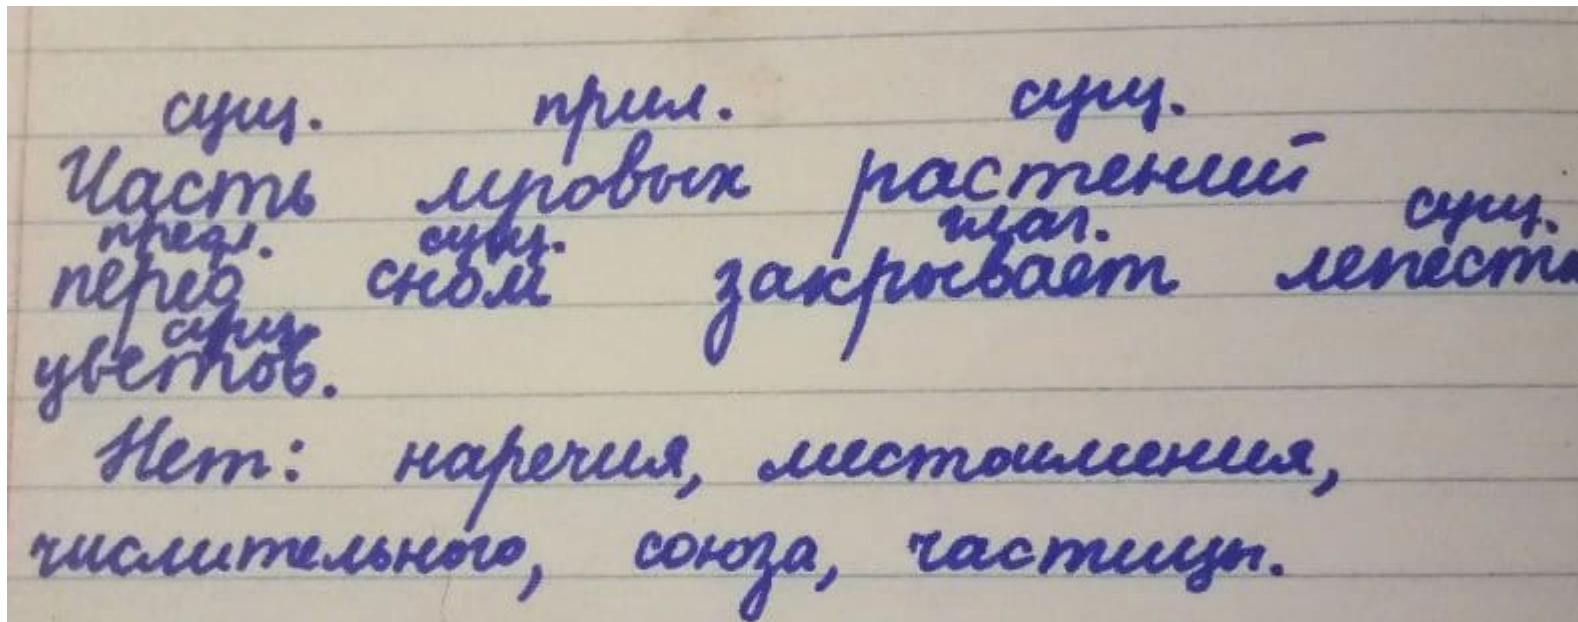 сущ. прил. сущ.
Часть луговых растений
предл. сущ. глаг. сущ.
перед сном закрывает
сущ.
цветов.
Нет: наречия, местоимения,
числительного, союза, частицы.